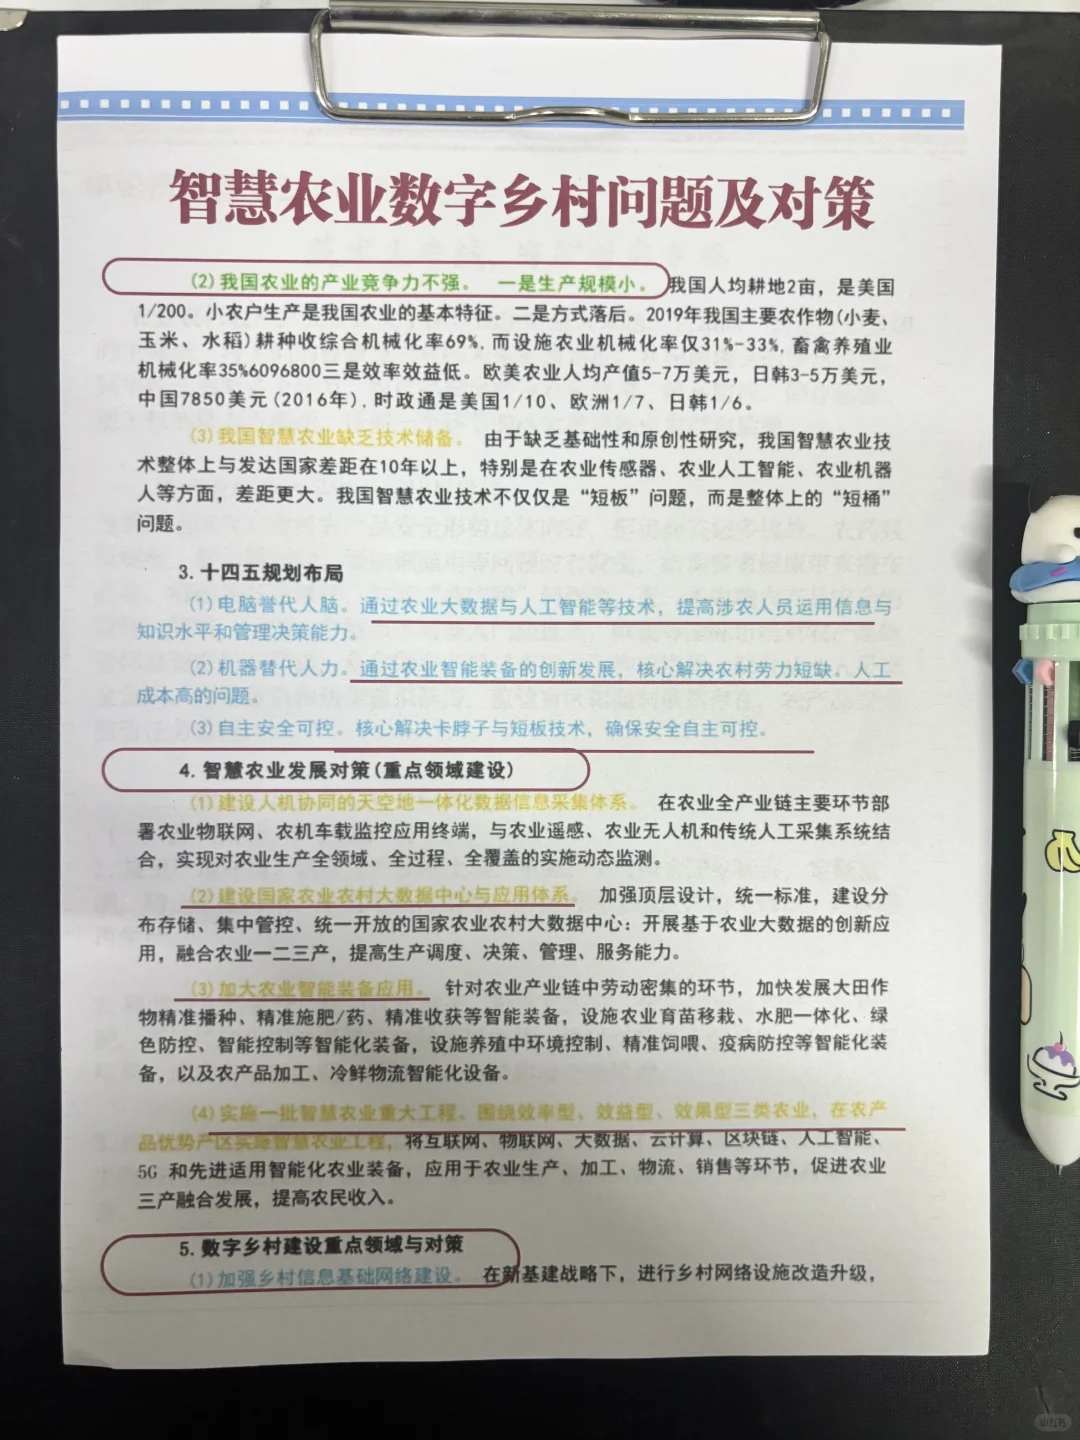 智慧农业数字乡村问题及对策
(2)我国农业的产业竞争力不强。 一是生产规模小。我国人均耕地2亩，是美国
1/200。小农户生产是我国农业的基本特征。二是方式落后。2019年我国主要农作物(小麦、
玉米、水稻)耕种收综合机械化率69%,而设施农业机械化率仅31%-33%,畜禽养殖业
机械化率35%6096800三是效率效益低。欧美农业人均产值5-7万美元，日韩3-5万美元，
中国7850美元(2016年),时政通是美国1/10、欧洲1/7、日韩1/6。
(3)我国智慧农业缺乏技术储备。 由于缺乏基础性和原创性研究，我国智慧农业技
术整体上与发达国家差距在10年以上，特别是在农业传感器、农业人工智能、农业机器
人等方面，差距更大。我国智慧农业技术不仅仅是“短板”问题，而是整体上的“短桶”
问题。
3.十四五规划布局
(1)电脑誉代人脑。通过农业大数据与人工智能等技术，提高涉农人员运用信息与
知识水平和管理决策能力。
(2)机器替代人力。通过农业智能装备的创新发展，核心解决农村劳力短缺。人工
成本高的问题。
(3)自主安全可控。核心解决卡脖子与短板技术，确保安全自主可控。
4.智慧农业发展对策(重点领域建设)
(1)建设人机协同的天空地一体化数据信息采集体系。 在农业全产业链主要环节部
署农业物联网、农机车载监控应用终端，与农业遥感、农业无人机和传统人工采集系统结
合，实现对农业生产全领域、全过程、全覆盖的实施动态监测。
(2)建设国家农业农村大数据中心与应用体系。 加强顶层设计，统一标准，建设分
布存储、集中管控、统一开放的国家农业农村大数据中心：开展基于农业大数据的创新应
用，融合农业一二三产，提高生产调度、决策、管理、服务能力。
(3)加大农业智能装备应用。 针对农业产业链中劳动密集的环节，加快发展大田作
物精准播种、精准施肥/药、精准收获等智能装备，设施农业育苗移栽、水肥一体化、绿
色防控、智能控制等智能化装备，设施养殖中环境控制、精准饲喂、疫病防控等智能化装
备，以及农产品加工、冷鲜物流智能化设备。
(4)实施一批智慧农业重大工程。围绕效率型、效益型、效果型三类农业，在农产
品优势产区实施智慧农业工程，将互联网、物联网、大数据、云计算、区块链、人工智能、
5G 和先进适用智能化农业装备，应用于农业生产、加工、物流、销售等环节，促进农业
三产融合发展，提高农民收入。
5.数字乡村建设重点领域与对策
(1)加强乡村信息基础网络建设。 在新基建战略下，进行乡村网络设施改造升级，
小红书